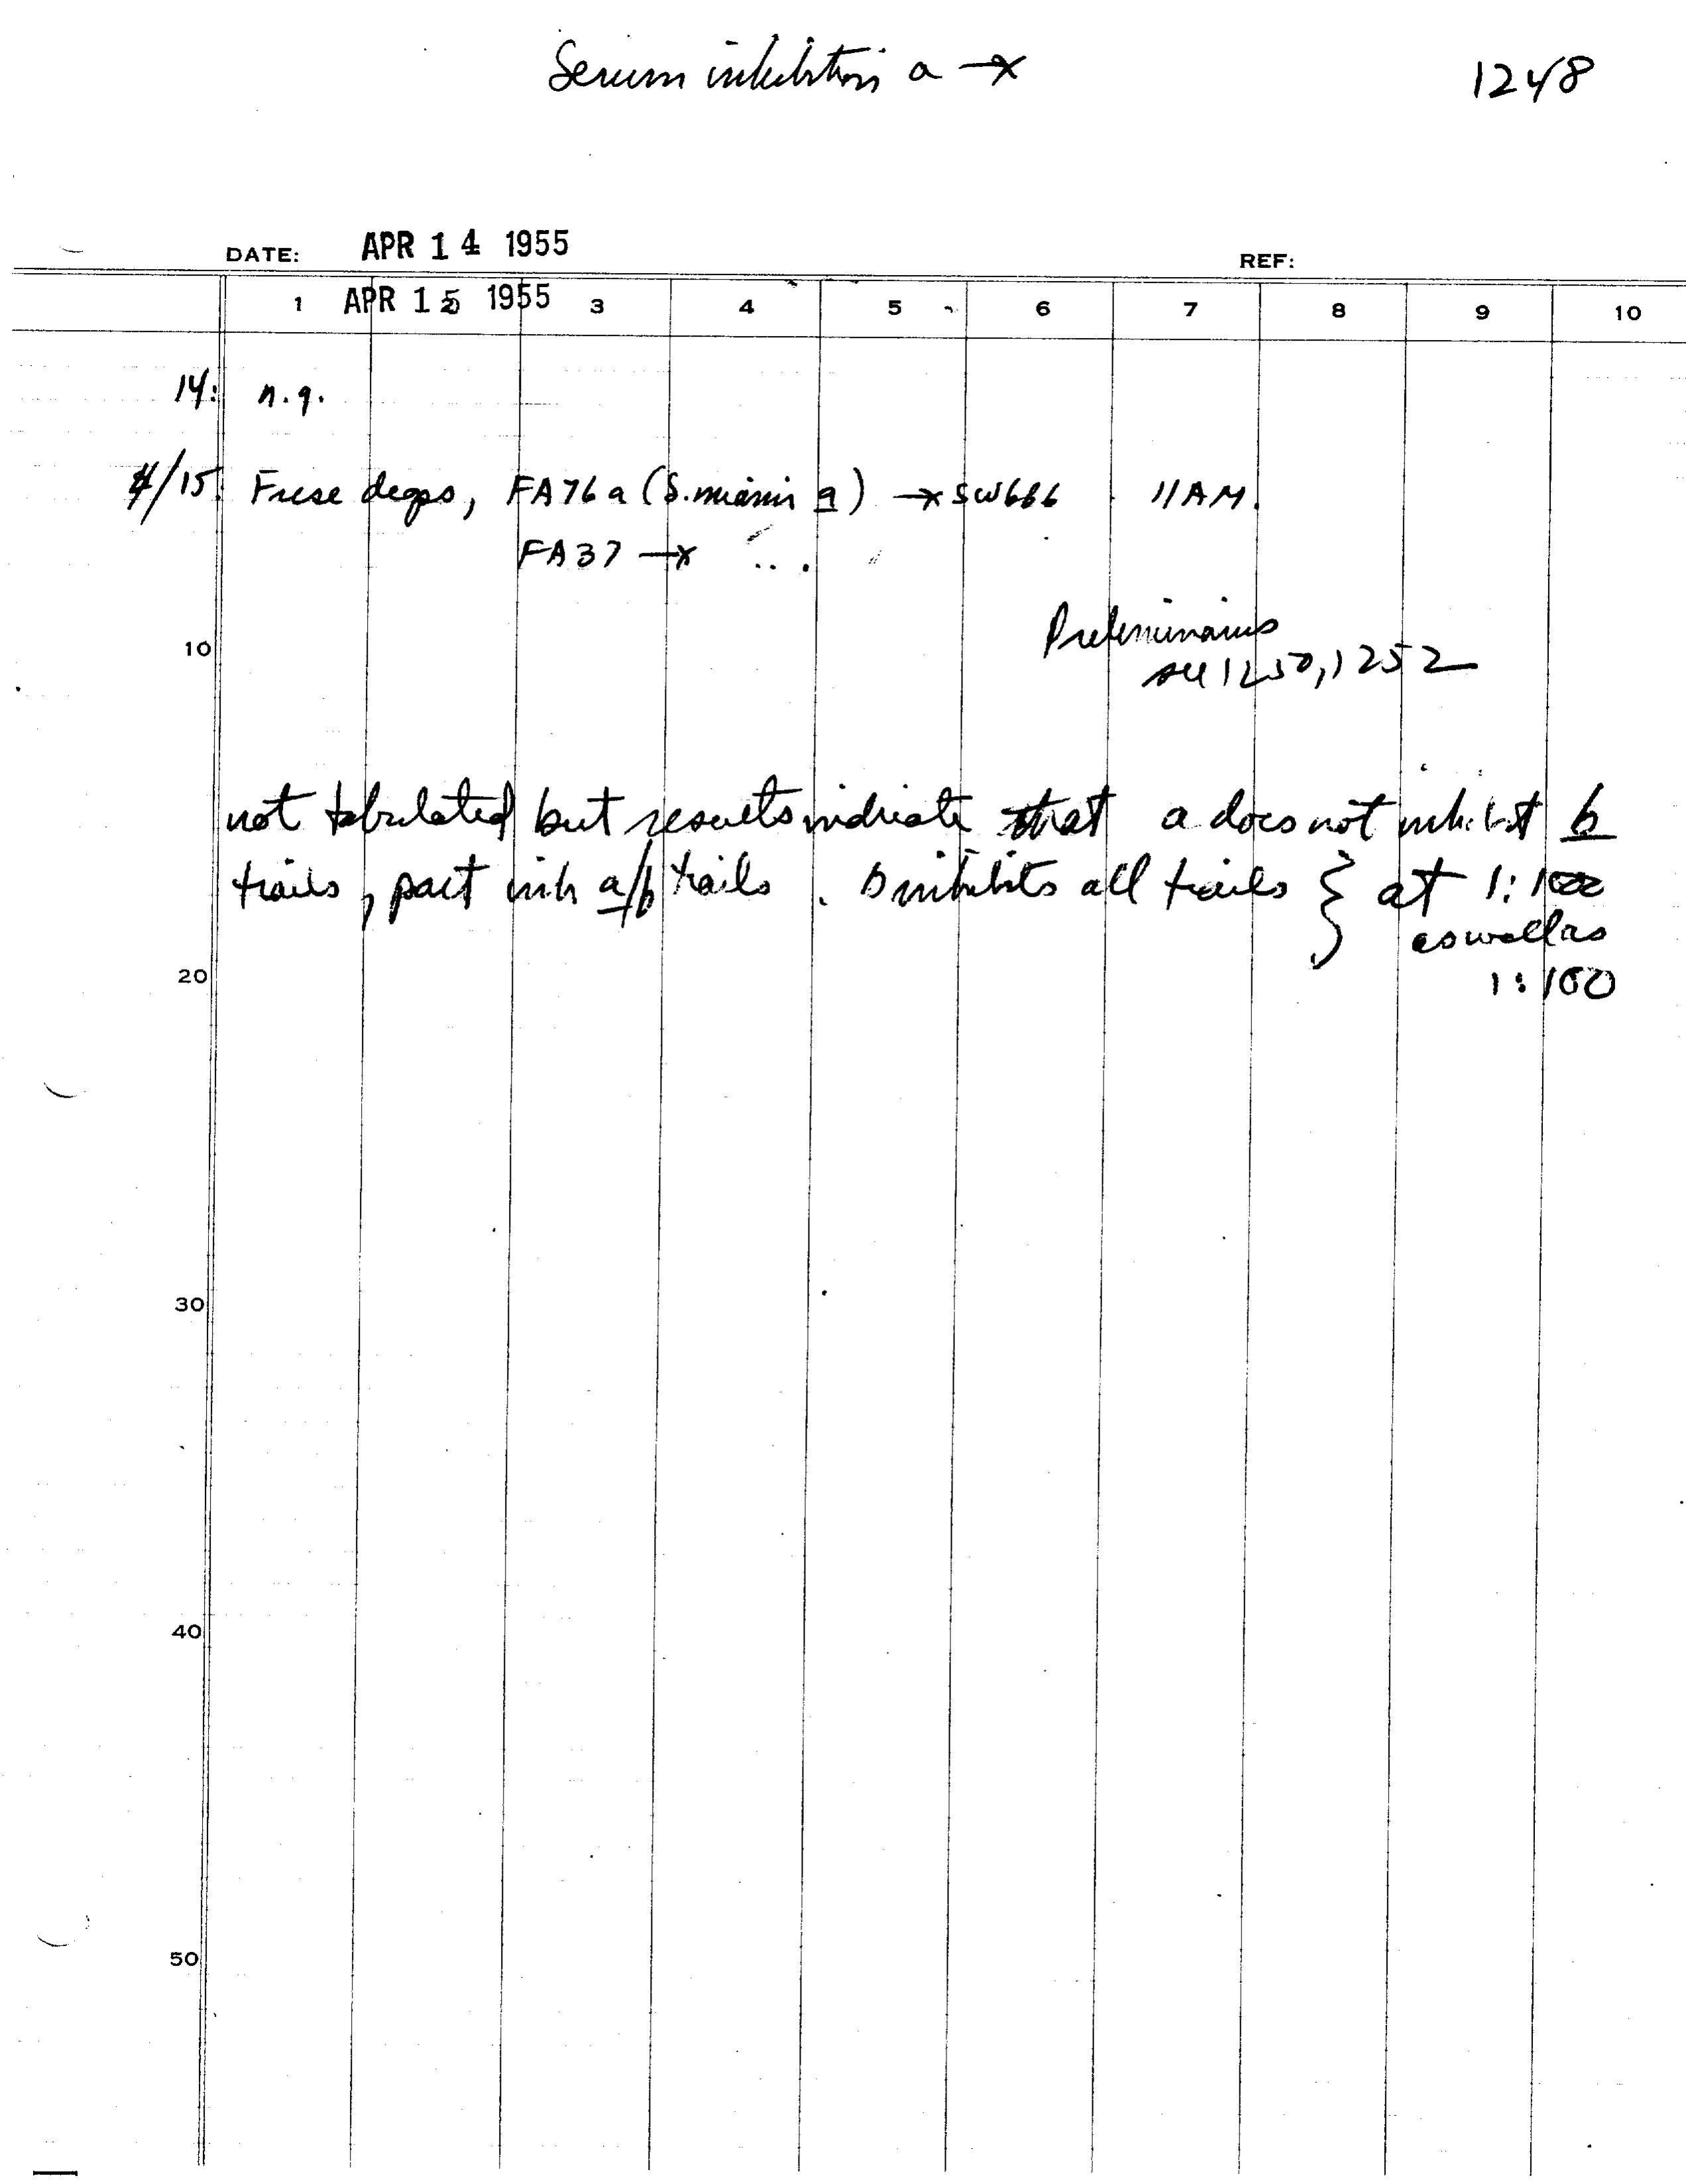 Serum inhibition a —x
1248
DATE: APR 14 1955 REF:
1 APR 15 1955 3 4 5 6 7 8 9 10
14: n.g.
4/15 Fuse degps, FA76a (S. miami a) —x SW666 11AM.
FA37 —x " .
10
Preliminaries
see 1250, 1252
not tabulated but results indicate that a does not inhibit b
trails, part inh a/b trails. b inhibits all trails } at 1:1000
as well as
20
1:100
30
40
50